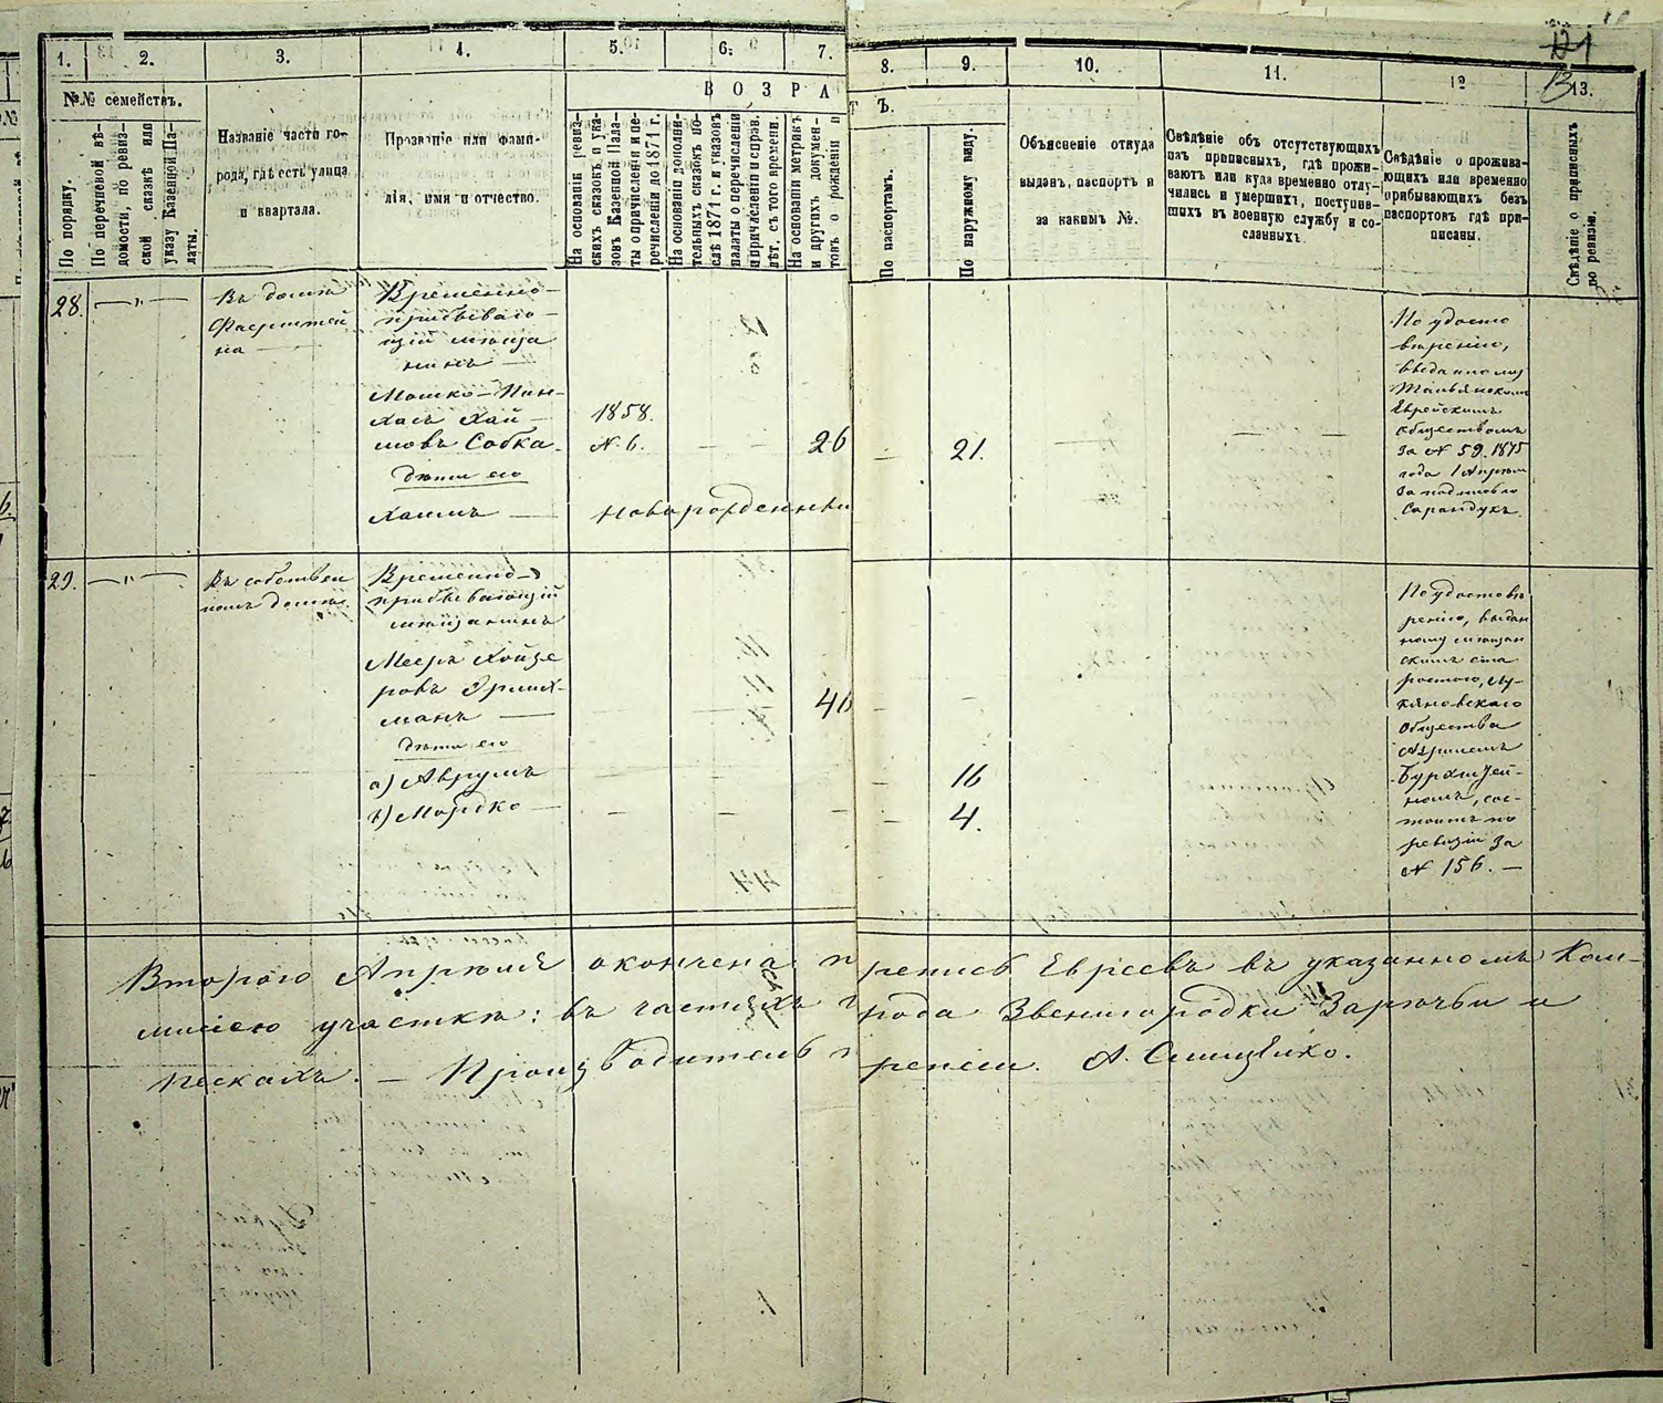 1. 2. 3. 4. 5. 6. 7. 8. 9. 10. 11. 12 13.
13
№№ семействъ.
По порядку.
По перечневой вѣ-
домости, по ревиз-
ской сказкѣ или
указу Казенной Па-
латы.
Названіе части го-
рода, гдѣ есть улица
и квартала.
Прозваніе или фами-
лія, имя и отчество.
ВОЗРАСТЪ.
На основаніи ревиз-
скихъ сказокъ и ука-
зовъ Казенной Пала-
ты о причисленіи и пе-
речисленіи до 1871 г.
На основаніи дополни-
тельныхъ сказокъ по-
слѣ 1871 г. и указовъ
палаты о перечисленіи
и причисленіи и справ.
лѣт. съ того времени.
На основаніи метрикъ
и другихъ докумен-
товъ о рожденіи и
По паспортамъ.
По наружному виду.
Объясненіе откуда
выданъ, паспортъ и
за какимъ №.
Свѣдѣніе объ отсутствующихъ
изъ приписныхъ, гдѣ прожи-
ваютъ или куда временно отлу-
чились и умершихъ, поступив-
шихъ въ военную службу и со-
сланныхъ.
Свѣдѣніе о прожива-
ющихъ или временно
прибывающихъ безъ
паспортовъ гдѣ при-
писаны.
Свѣдѣніе о приписныхъ
по ревизіи.
28. — " —
Въ домѣ
Фаерштей
на
Временно-
прибываю-
щій мѣща
нинъ
Мошко-Пин-
хасъ Хай-
мовъ Собка.
1858.
N. 6. — — 26 — 21. — — —
дѣти его
Хаимъ — новорожденный
По удосто
вѣренію,
выданному
Тальянскимъ
Еврейскимъ
обществомъ
за N 59. 1875
года 1 Апрѣля
за подписью
Сарандукъ.
29. — " —
Въ собствен
номъ домѣ.
Временно-
прибывающій
мѣщанинъ
Мееръ Лойзе
ровъ Эрлих-
манъ — — — 46 — —
дѣти его
а) Аврумъ — — — 16
в) Мордко — — — — — 4.
По удостовѣ
ренію, выдан
ному мѣщан
скимъ ста
ростою, Лу-
кяновскаго
Общества
Бурштей-
номъ, сос-
тоитъ по
ревизіи за
N 156. —
Второго Апрѣля окончена перепись Евреевъ въ указанномъ Ком-
миссіею участкѣ: въ частяхъ города Звенигородки Зарѣчьи и
Пескахъ. — Производитель переписи. А.